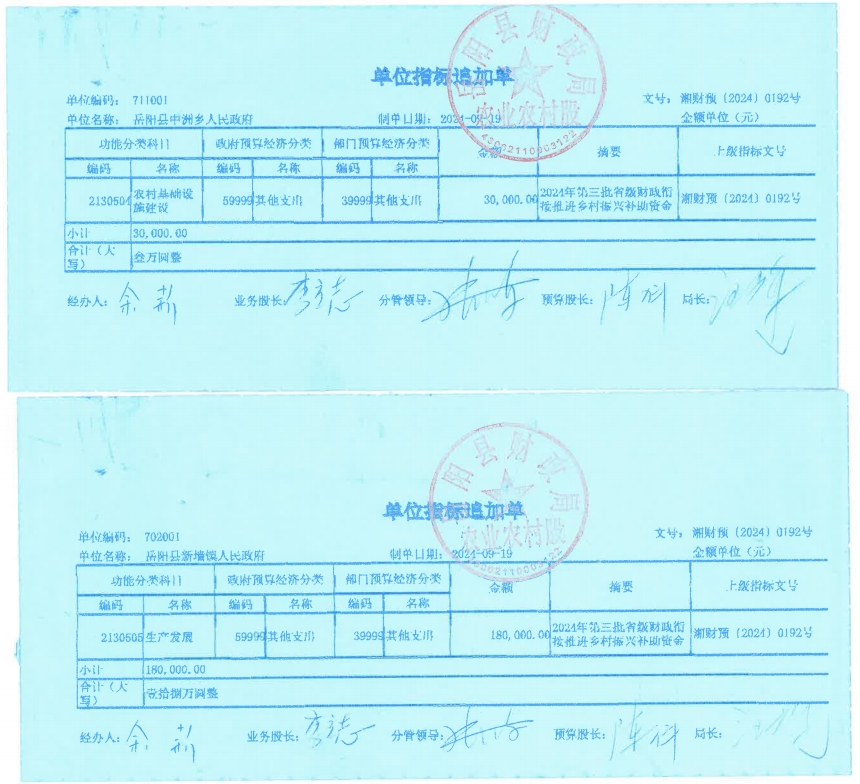 单位指标追加单
岳阳县财政局
农业农村股
43062110003122
单位编码： 711001
文号： 湘财预（2024）0192号
单位名称： 岳阳县中洲乡人民政府 制单日期： 2024-09-19 金额单位（元）
功能分类科目 政府预算经济分类 部门预算经济分类 金额 摘要 上级指标文号
编码 名称 编码 名称 编码 名称
2130504 农村基础设施建设 59999 其他支出 39999 其他支出 30,000.00 2024年第三批省级财政衔接推进乡村振兴补助资金 湘财预（2024）0192号
小计 30,000.00
合计（大写） 叁万圆整
经办人： 余 业务股长： 李志 分管领导： 预算股长： 陈科 局长：
单位指标追加单
岳阳县财政局
农业农村股
单位编码： 702001
文号： 湘财预（2024）0192号
单位名称： 岳阳县新墙镇人民政府 制单日期： 2024-09-19 金额单位（元）
功能分类科目 政府预算经济分类 部门预算经济分类 金额 摘要 上级指标文号
编码 名称 编码 名称 编码 名称
2130505 生产发展 59999 其他支出 39999 其他支出 180,000.00 2024年第三批省级财政衔接推进乡村振兴补助资金 湘财预（2024）0192号
小计 180,000.00
合计（大写） 壹拾捌万圆整
经办人： 余 业务股长： 李志 分管领导： 预算股长： 陈科 局长：